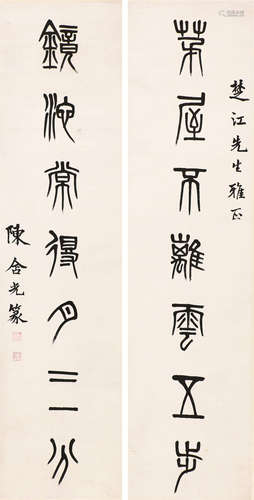 楚江先生雅正
茅屋不離雲五步
鏡池常得月二分
陳含光篆